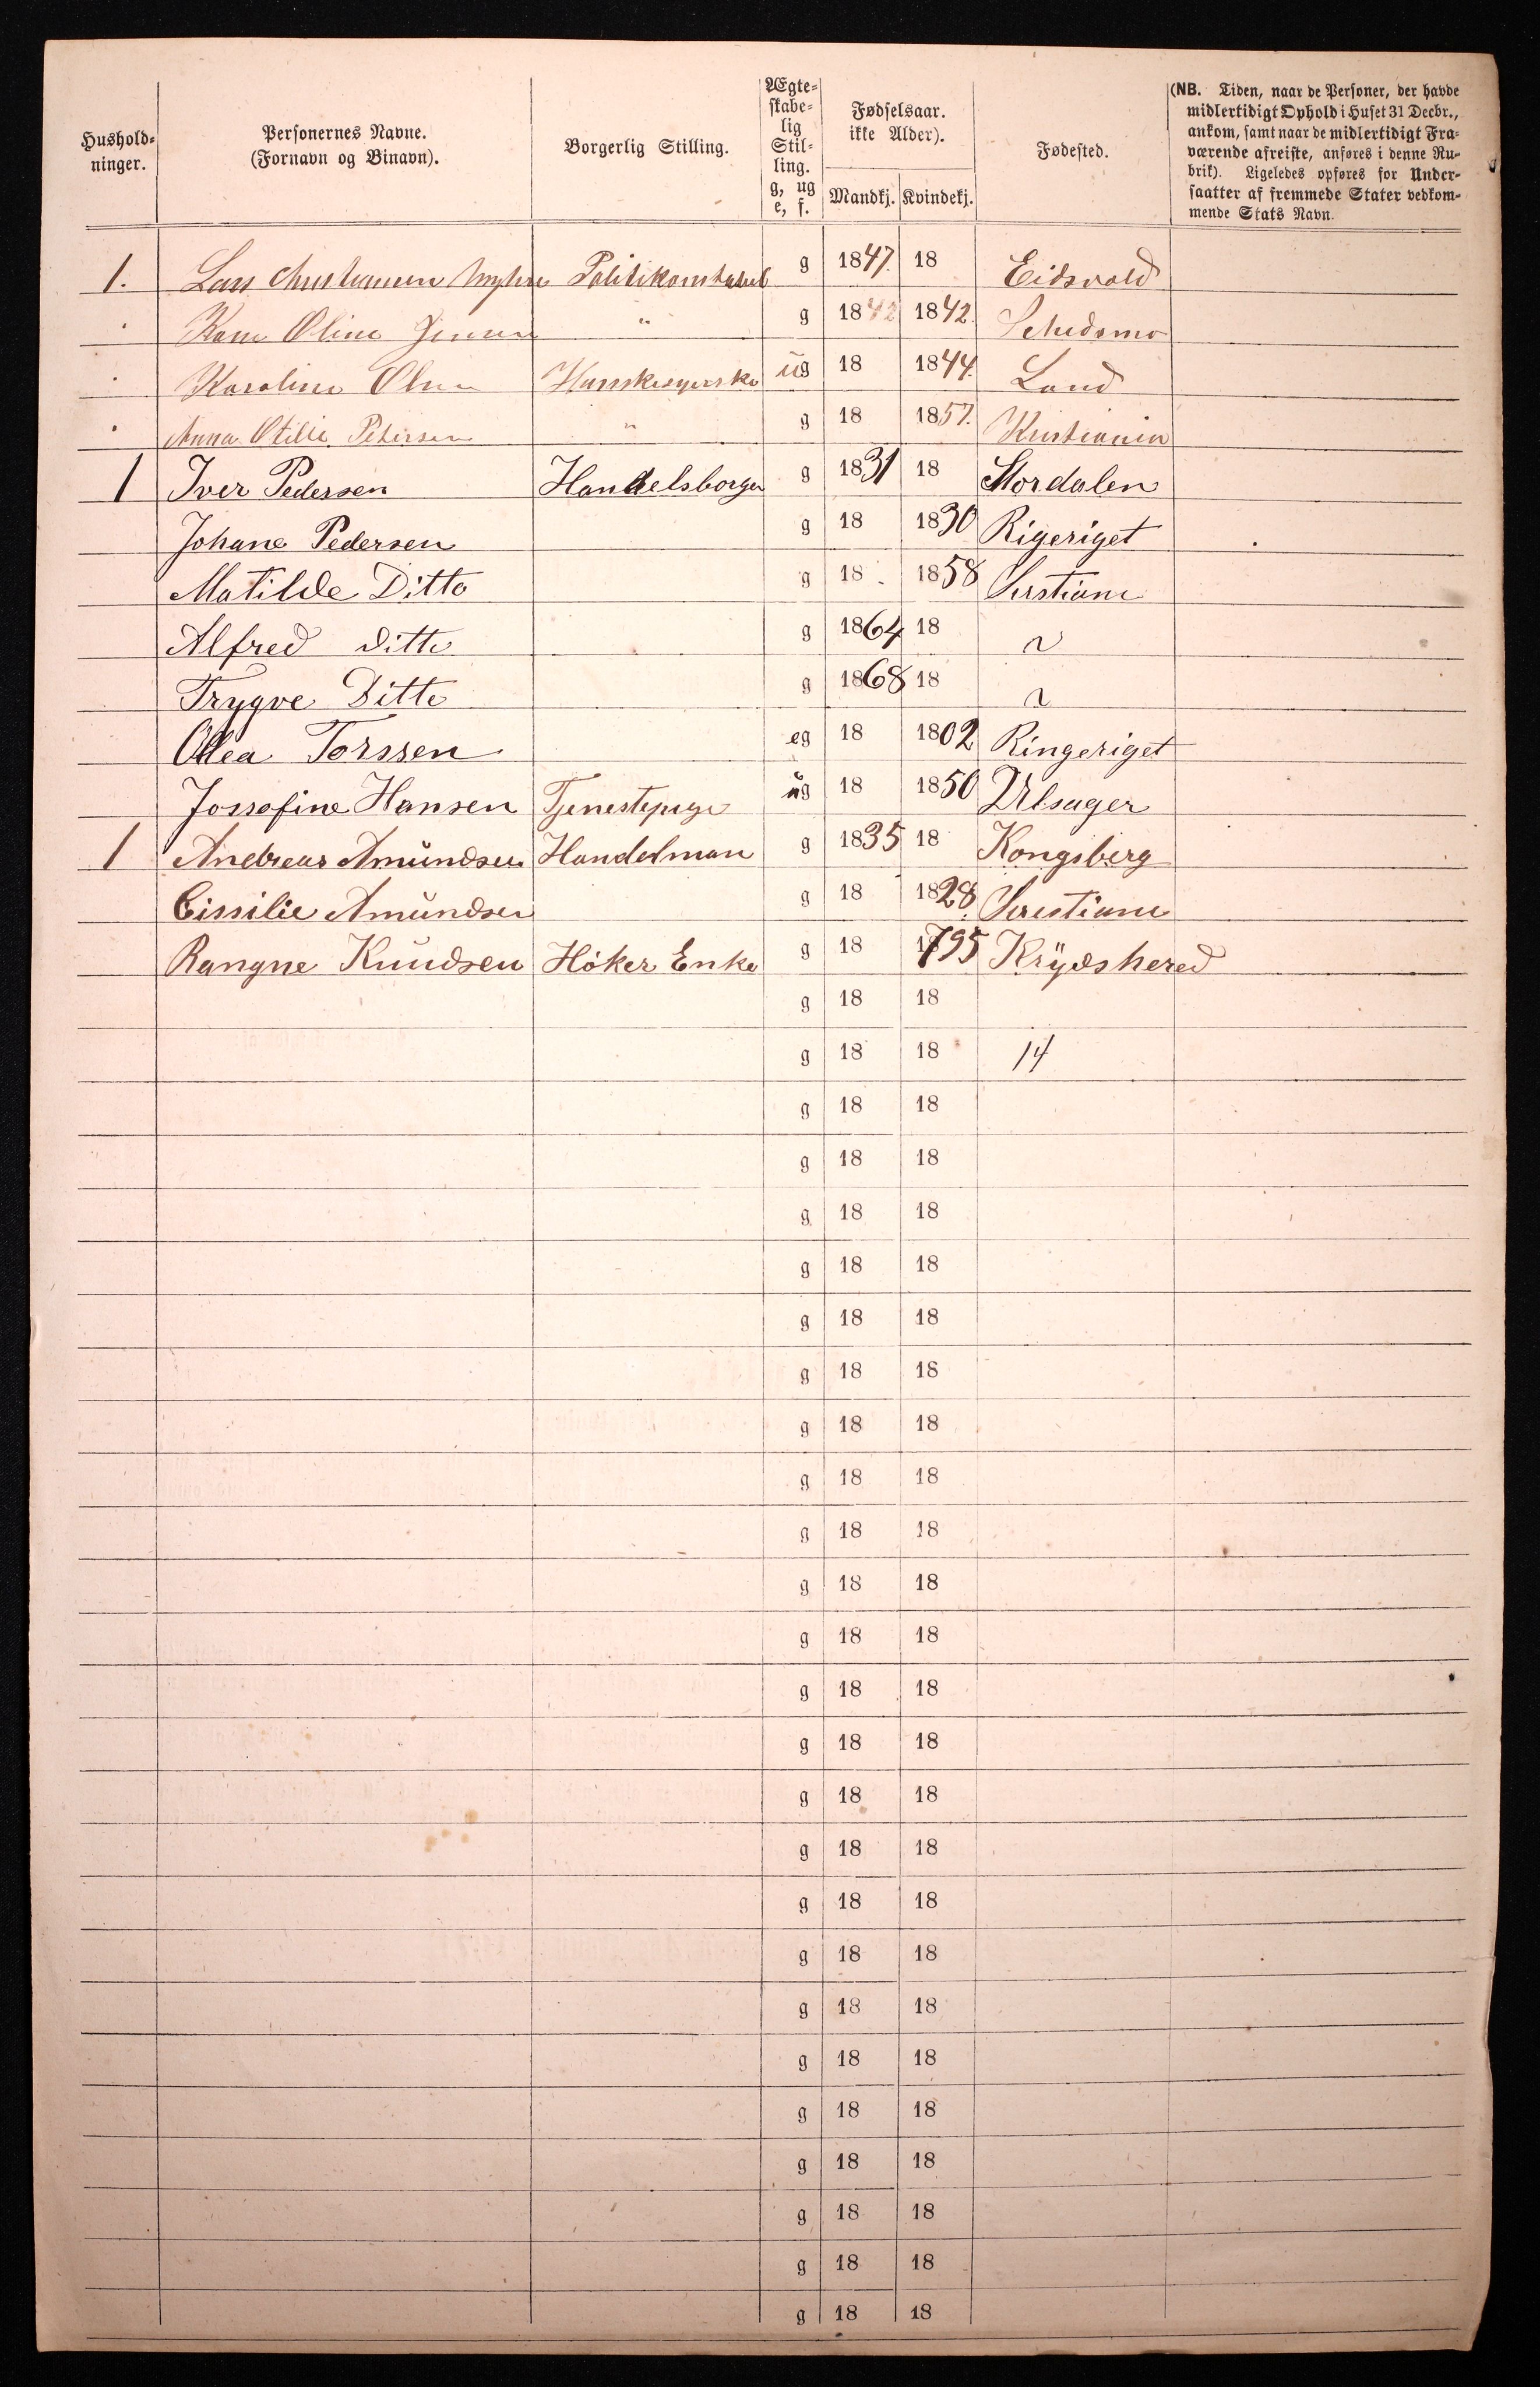 Hushold-
ninger.
Personernes Navne.
(Fornavn og Binavn).
Borgerlig Stilling.
Ægte-
skabe-
lig
Stil-
ling.
g, ug
e, f.
Fødselsaar.
ikke Alder).
Mandkj. Kvindekj.
Fødested.
(NB. Tiden, naar de Personer, der havde
midlertidigt Ophold i Huset 31 Decbr.,
ankom, samt naar de midlertidigt Fra-
værende afreiste, anføres i denne Ru-
brik). Ligeledes opføres for Under-
saatter af fremmede Stater vedkom-
mende Stats Navn.
1. Lars Christiansen Myhre Politikonstabel g 1847. 18 Eidsvold
Oline " g 1842 1842. Schedsmo
Karoline Olsen ug 18 1844. Land
Anna Otilie Petersen " g 18 1857. Kristiania
1 Iver Pedersen Handelsborger g 1831 18 Stordalen
Johane Pedersen g 18 1830 Rigeriget
Matilde Ditto g 18 1858
Alfred Ditto g 1864 18
Trygve Ditto g 1868 18
Olea Torssen eg 18 1802 Ringeriget
Jossefine Hansen Tjenestepige ug 18 1850 Ulsager
1 Andreas Amundsen Handelman g 1835 18 Kongsberg
Cissilie Amundsen g 18 1828
Rangne Knudsen Höker Enke g 18 1795 Krydshered
g 18 18
g 18 18 14
g 18 18
g 18 18
g 18 18
g 18 18
g 18 18
g 18 18
g 18 18
g 18 18
g 18 18
g 18 18
g 18 18
g 18 18
g 18 18
g 18 18
g 18 18
g 18 18
g 18 18
g 18 18
g 18 18
g 18 18
g 18 18
g 18 18
g 18 18
g 18 18